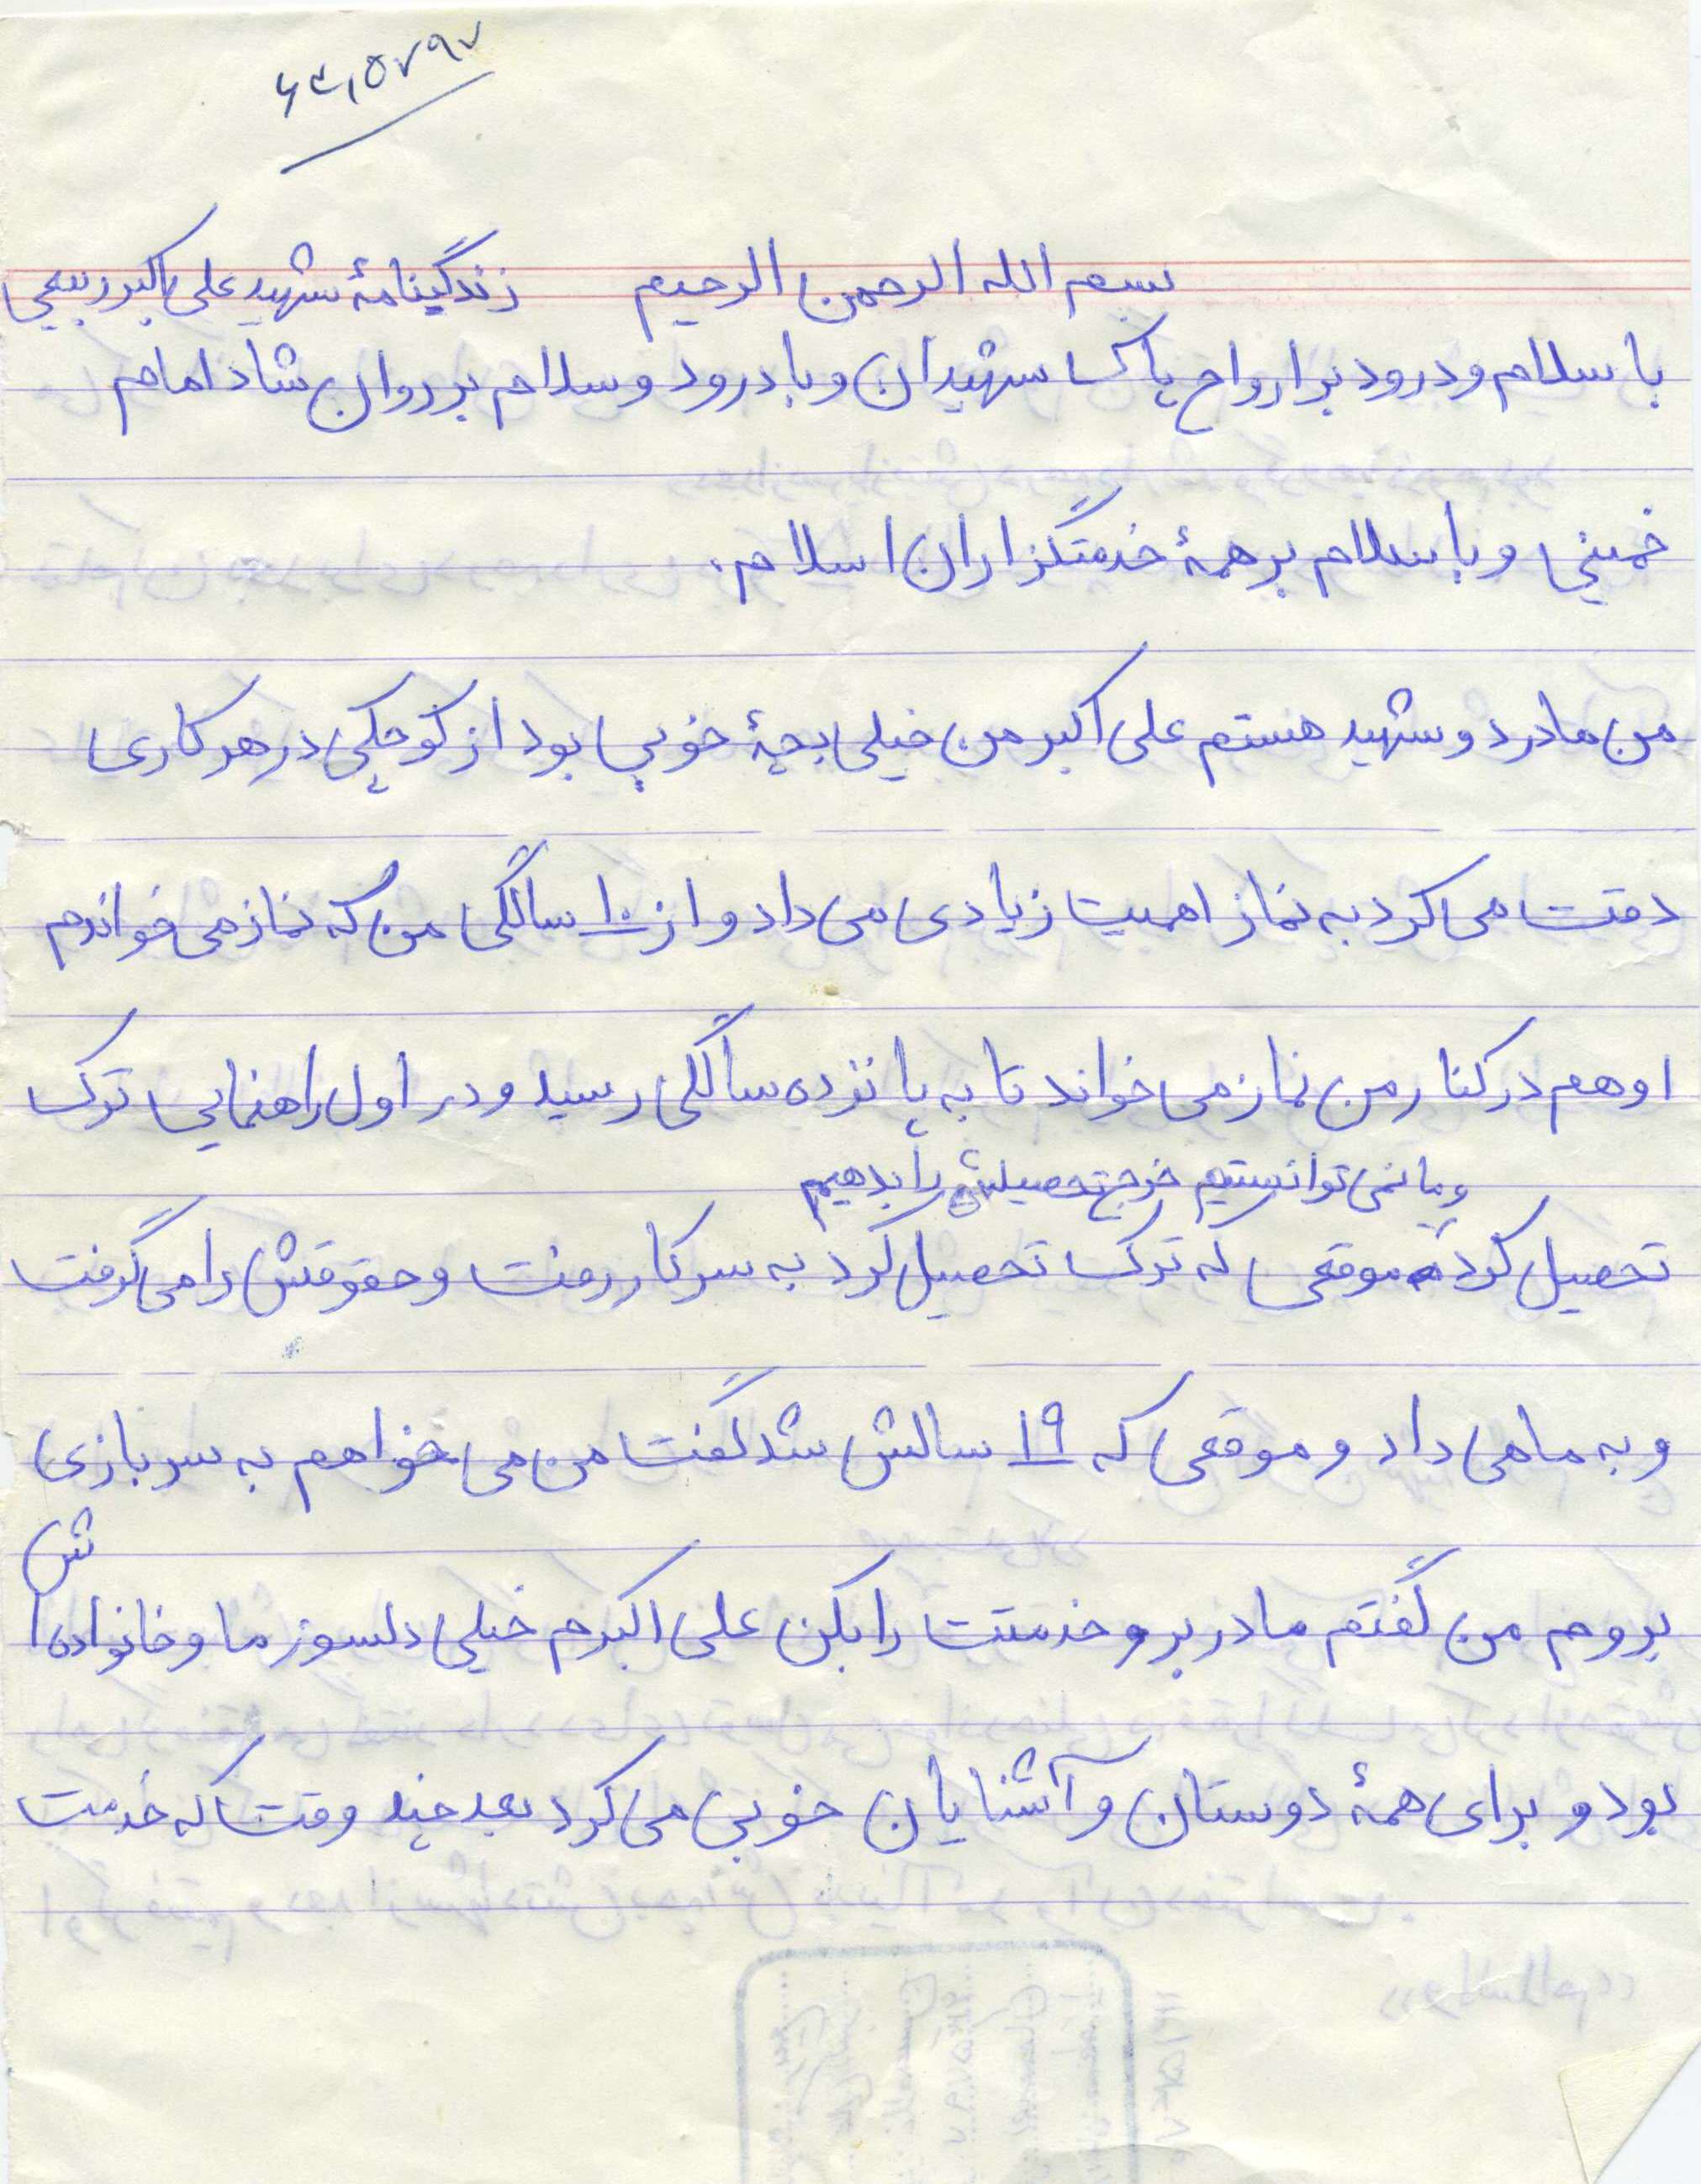 ۶۳۱۵۷۹۷
بسم الله الرحمن الرحیم زندگینامهٔ شهید علی اکبر ربیعی
با سلام و درود بر ارواح پاک شهیدان و با درود و سلام بر روان شاد امام
خمینی و با سلام بر همهٔ خدمتگزاران اسلام.
من مادر دو شهید هستم علی اکبر من خیلی بچهٔ خوبی بود از کوچکی در هر کاری
دقت می کرد به نماز اهمیت زیادی می داد و از ۱۰ سالگی من که نماز می خواندم
او هم در کنار من نماز می خواند تا به پانزده سالگی رسید و در اول راهنمایی ترک
و ما نمی توانستیم خرج تحصیلش را بدهیم
تحصیل کرد موقعی که ترک تحصیل کرد به سر کار رفت و حقوقش را می گرفت
و به ما می داد و موقعی که ۱۹ سالش شد گفت من می خواهم به سربازی
بروم من گفتم مادر برو خدمتت را بکن علی اکبرم خیلی دلسوز ما و خانواده اش
بود و برای همهٔ دوستان و آشنایان خوبی می کرد بعد چند وقت که خدمت